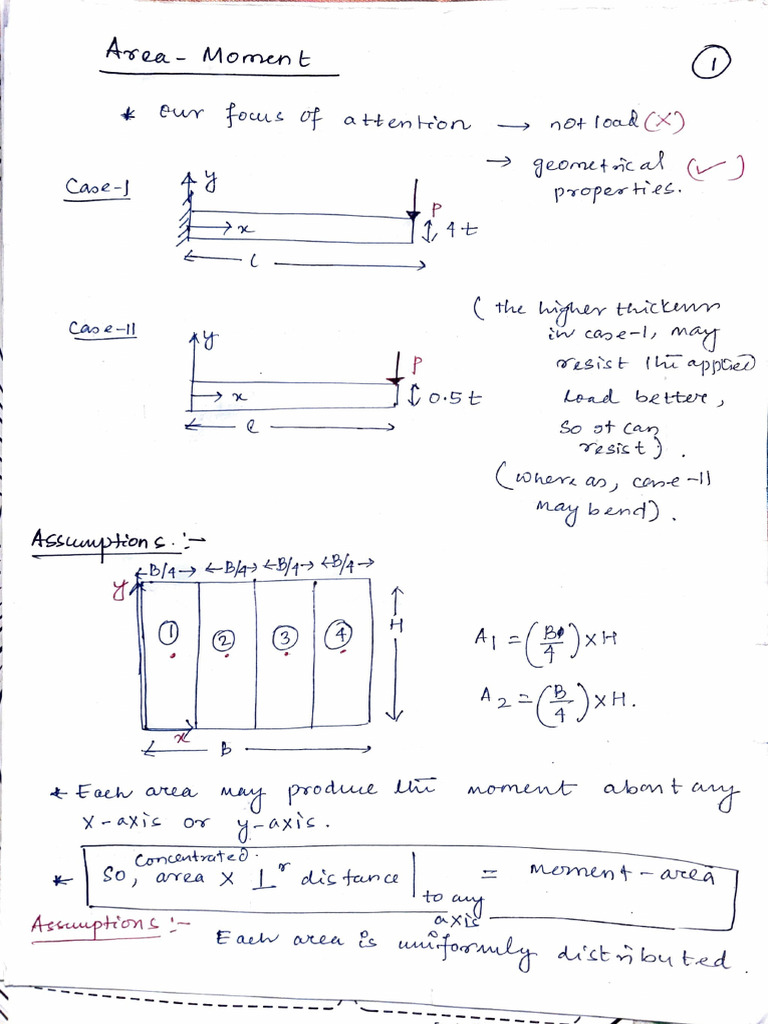 Area - Moment
1
* our focus of attention → not load (X)
→ geometrical (✓)
properties.
Case-I
y
x
P
4t
l
Case-II
y
x
P
0.5t
l
( the higher thickness
in case-I, may
resist the applied
load better,
so it can
resist).
(where as, case-II
may bend).
Assumptions :-
←B/4→ ←B/4→ ←B/4→ ←B/4→
y
1 2 3 4
H
x
B
A1 = (B/4) × H
A2 = (B/4) × H.
* Each area may produce the moment about any
x-axis or y-axis.
concentrated.
* So, area × ⊥r distance | = moment - area
to any
axis
Assumptions :-
Each area is uniformly distributed.